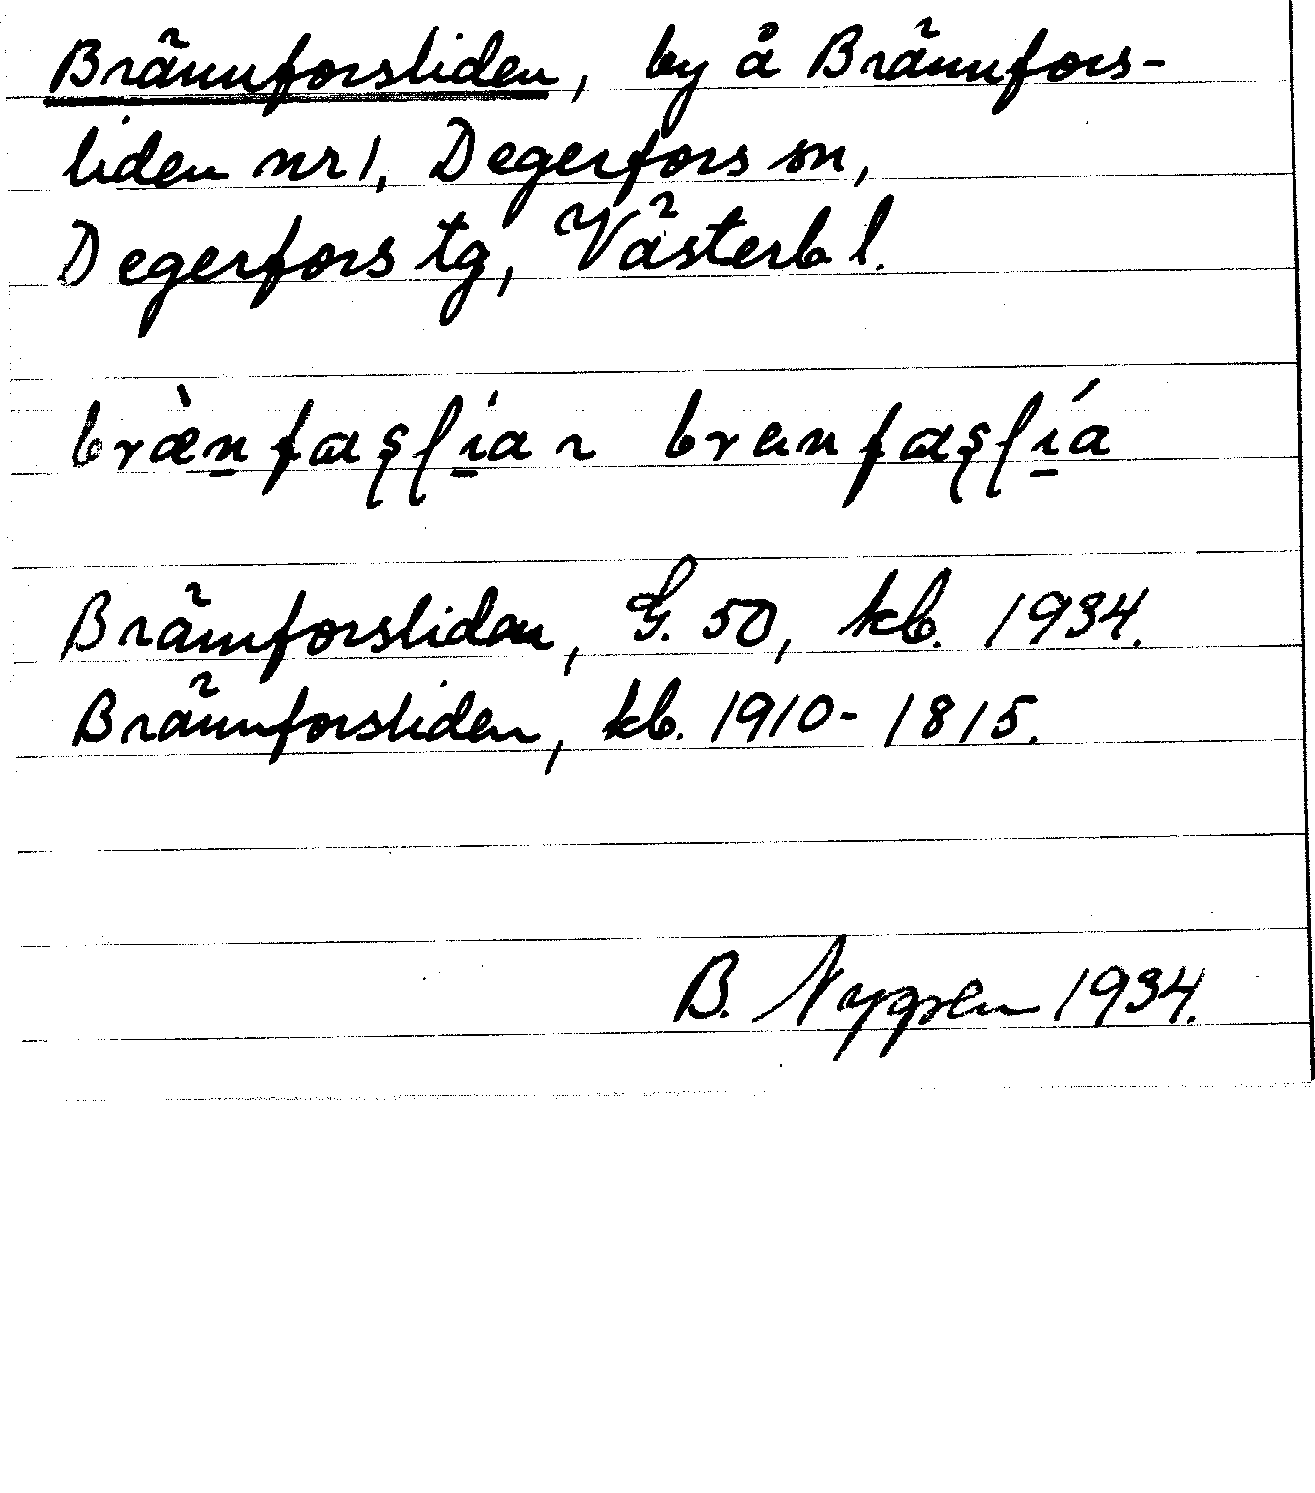 Brännforsliden, by å Brännfors-
liden nr 1, Degerfors sn,
Degerfors tg, Västerb l.
bræ̀n̲fɑʂʃì̲a ~ brænfɑʂʃí̲a
Brännforslidan, G. 50, kb. 1934.
Brännforsliden, kb. 1910-1815.
B. Nygren 1934.